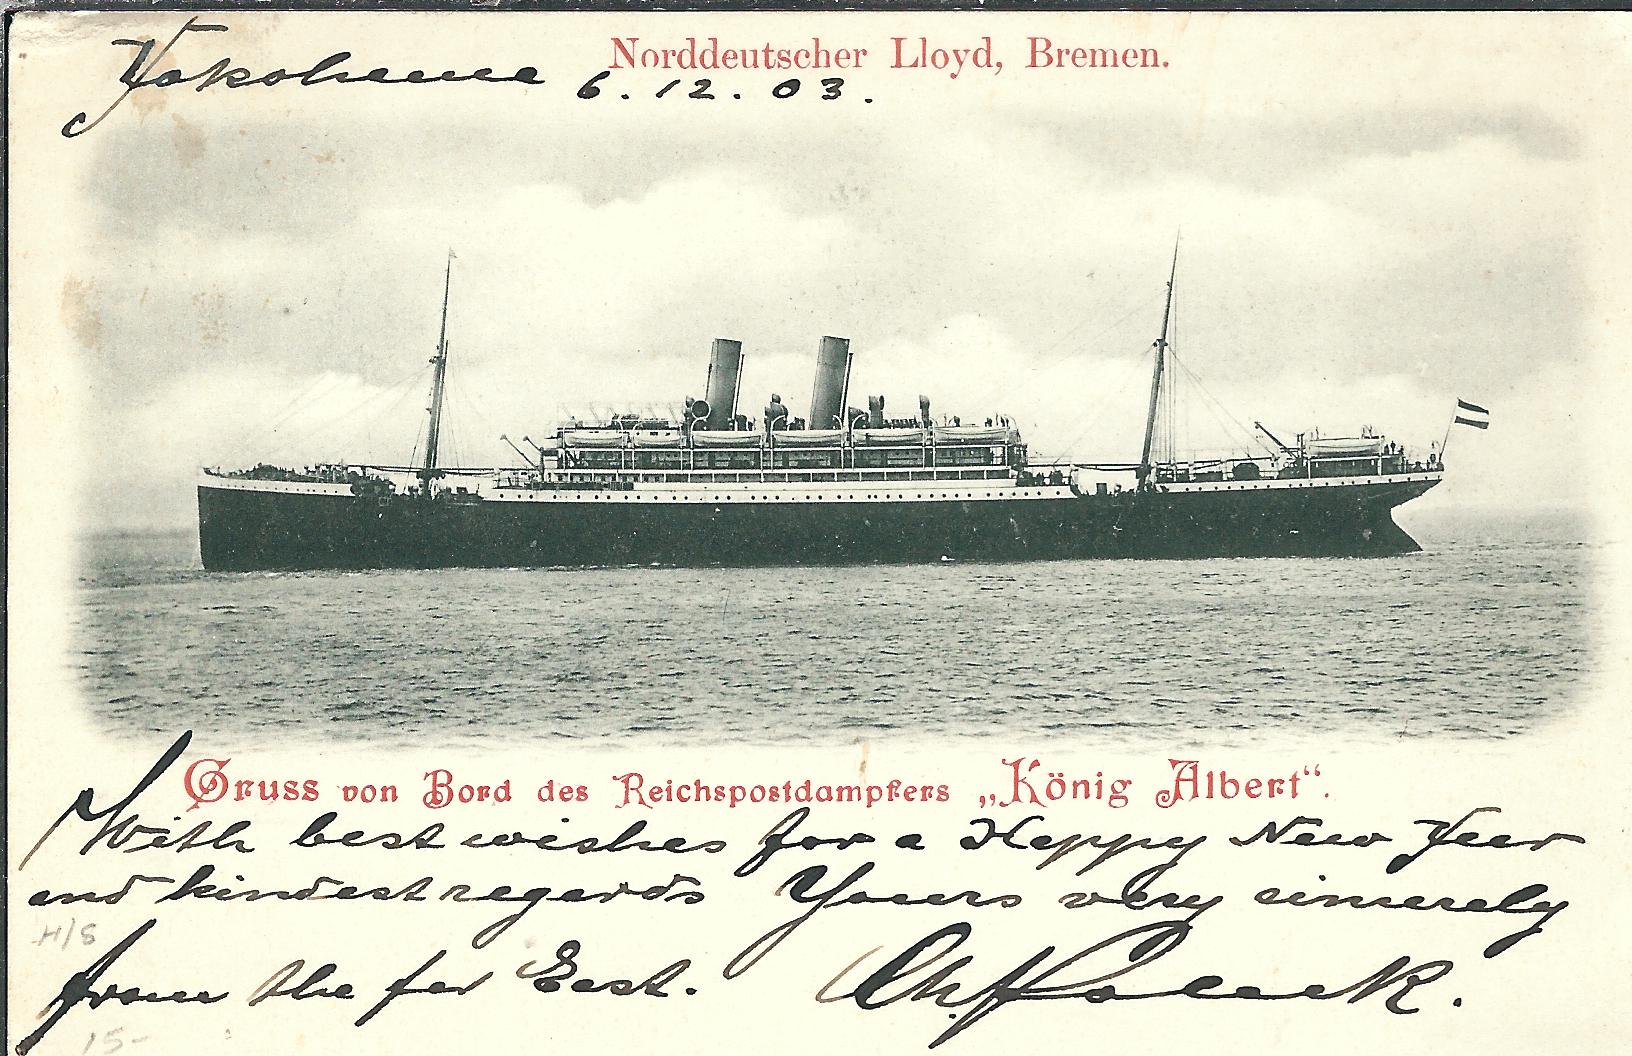 Norddeutscher Lloyd, Bremen.
Yokohama 6.12.03.
Gruss von Bord des Reichspostdampfers „König Albert“.
With best wishes for a Happy New Year
and kindest regards Yours very sincerely
H/S
from the far East.
15-